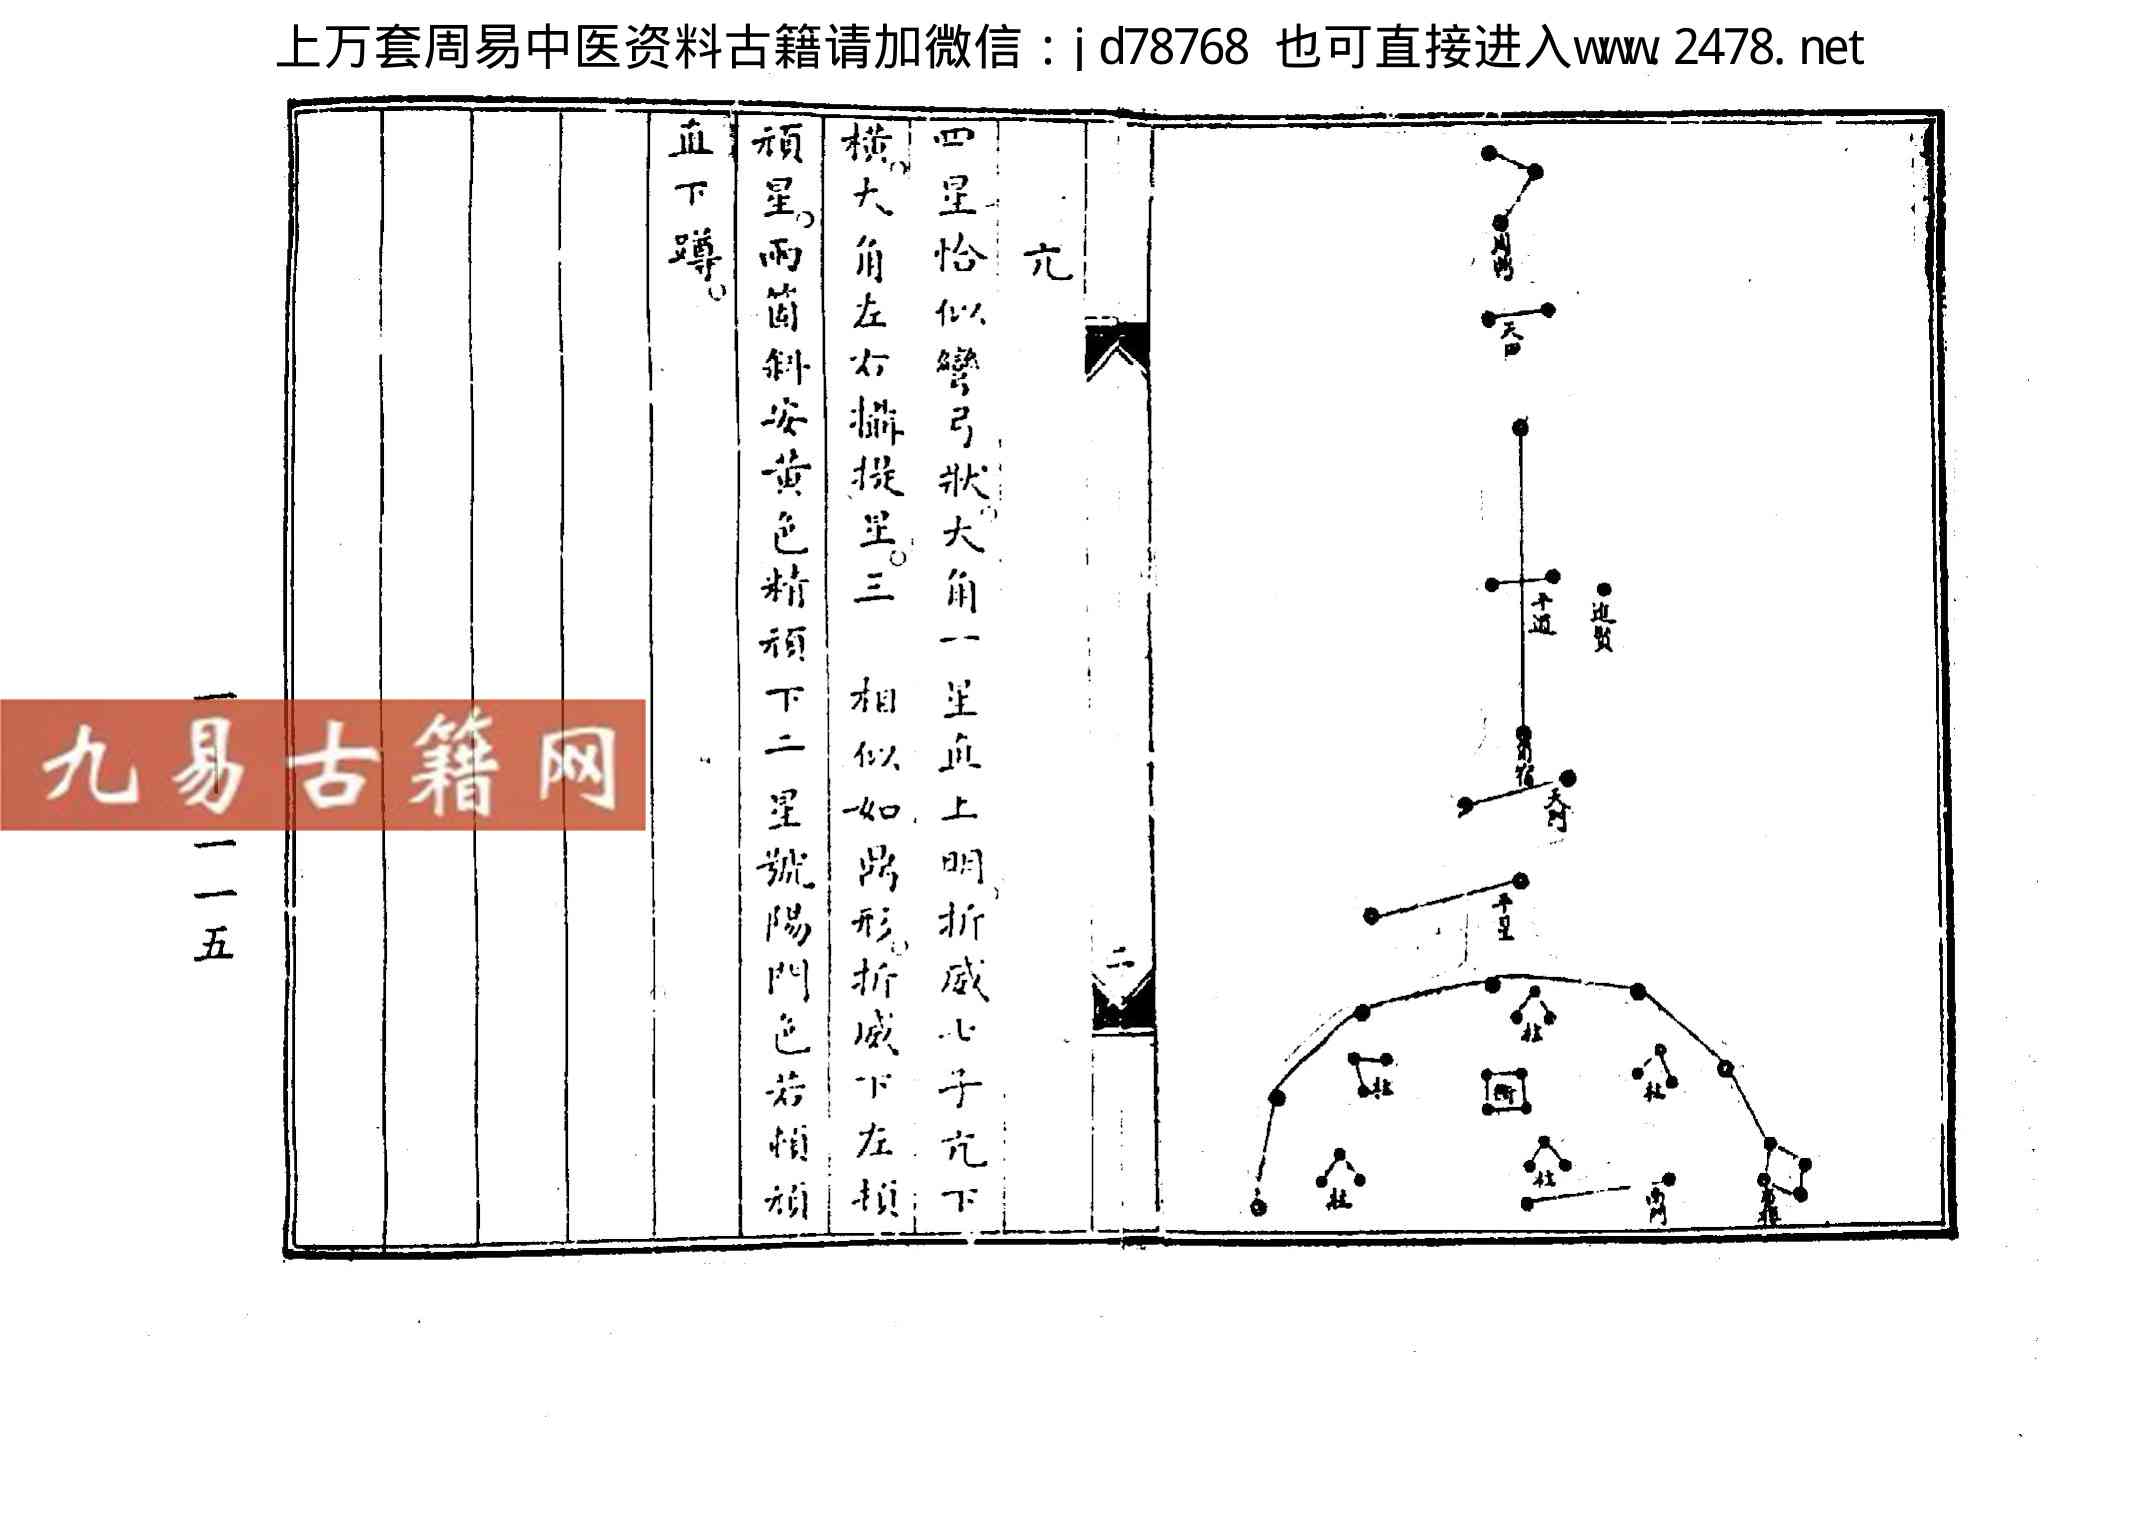 上万套周易中医资料古籍请加微信：jd78768 也可直接进入www.2478.net
周鼎
天田
平道
進賢
角宿
天門
平星
柱
柱
衡
柱
柱
柱
南門
二
亢
四星恰似彎弓狀大角一星直上明折威七子亢下
横大角左右攝提星三 相似如鼎形折威下左頏
頏星兩箇斜安黄色精頏下二星號陽門色若頏頏
直下蹲
九易古籍网
一一五